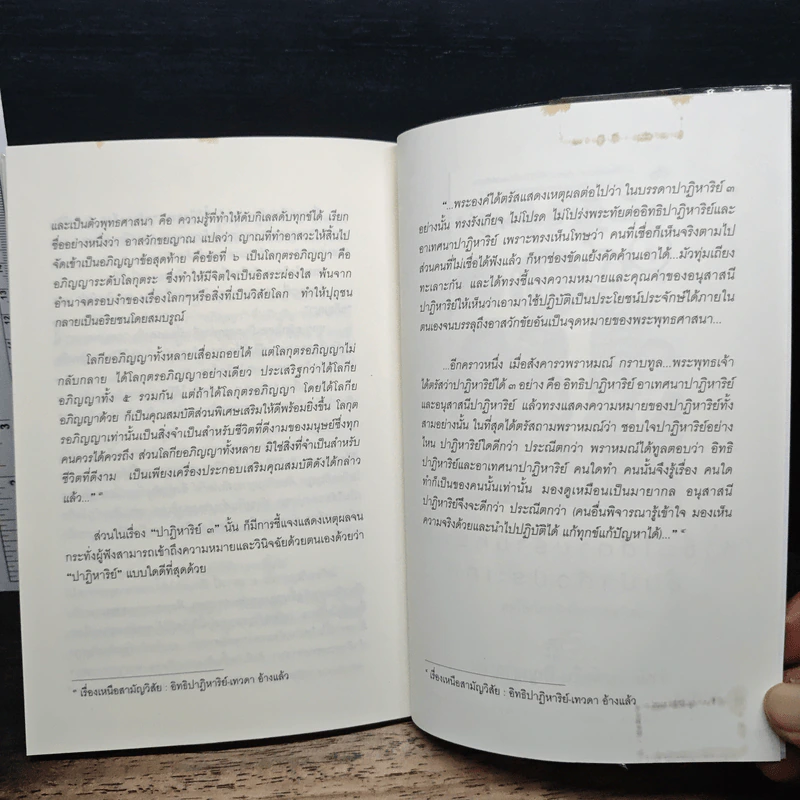 และเป็นตัวพุทธศาสนา คือ ความรู้ที่ทำให้ดับกิเลสดับทุกข์ได้ เรียก
ชื่ออย่างหนึ่งว่า อาสวักขยญาณ แปลว่า ญาณที่ทำอาสวะให้สิ้นไป
จัดเข้าเป็นอภิญญาข้อสุดท้าย คือข้อที่ ๖ เป็นโลกุตรอภิญญา คือ
อภิญญาระดับโลกุตระ ซึ่งทำให้มีจิตใจเป็นอิสระผ่องใส พ้นจาก
อำนาจครอบงำของเรื่องโลกๆหรือสิ่งที่เป็นวิสัยโลก ทำให้ปุถุชน
กลายเป็นอริยชนโดยสมบูรณ์
โลกียอภิญญาทั้งหลายเสื่อมถอยได้ แต่โลกุตรอภิญญาไม่
กลับกลาย ได้โลกุตรอภิญญาอย่างเดียว ประเสริฐกว่าได้โลกีย
อภิญญาทั้ง ๕ รวมกัน แต่ถ้าได้โลกุตรอภิญญา โดยได้โลกีย
อภิญญาด้วย ก็เป็นคุณสมบัติส่วนพิเศษเสริมให้ดีพร้อมยิ่งขึ้น โลกุต
รอภิญญาเท่านั้นเป็นสิ่งจำเป็นสำหรับชีวิตที่ดีงามของมนุษย์ซึ่งทุก
คนควรได้ควรถึง ส่วนโลกียอภิญญาทั้งหลาย มิใช่สิ่งที่จำเป็นสำหรับ
ชีวิตที่ดีงาม เป็นเพียงเครื่องประกอบเสริมคุณสมบัติดังได้กล่าว
แล้ว..."
ส่วนในเรื่อง "ปาฏิหาริย์ ๓" นั้น ก็มีการชี้แจงแสดงเหตุผลจน
กระทั่งผู้ฟังสามารถเข้าถึงความหมายและวินิจฉัยด้วยตนเองด้วยว่า
"ปาฏิหาริย์" แบบใดดีที่สุดด้วย
เรื่องเหนือสามัญวิสัย : อิทธิปาฏิหาริย์-เทวดา อ้างแล้ว
"...พระองค์ได้ตรัสแสดงเหตุผลต่อไปว่า ในบรรดาปาฏิหาริย์ ๓
อย่างนั้น ทรงรังเกียจ ไม่โปรด ไม่โปร่งพระทัยต่ออิทธิปาฏิหาริย์และ
อาเทศนาปาฏิหาริย์ เพราะทรงเห็นโทษว่า คนที่เชื่อก็เห็นจริงตามไป
ส่วนคนที่ไม่เชื่อได้ฟังแล้ว ก็หาช่องขัดแย้งคัดค้านเอาได้...มัวทุ่มเถียง
ทะเลาะกัน และได้ทรงชี้แจงความหมายและคุณค่าของอนุสาสนี
ปาฏิหาริย์ให้เห็นว่าเอามาใช้ปฏิบัติเป็นประโยชน์ประจักษ์ได้ภายใน
ตนเองจนบรรลุถึงอาสวักขัยอันเป็นจุดหมายของพระพุทธศาสนา...
...อีกคราวหนึ่ง เมื่อสังคารวพราหมณ์ กราบทูล...พระพุทธเจ้า
ได้ตรัสว่าปาฏิหาริย์ได้ ๓ อย่าง คือ อิทธิปาฏิหาริย์ อาเทศนาปาฏิหาริย์
และอนุสาสนีปาฏิหาริย์ แล้วทรงแสดงความหมายของปาฏิหาริย์ทั้ง
สามอย่างนั้น ในที่สุดได้ตรัสถามพราหมณ์ว่า ชอบใจปาฏิหาริย์อย่าง
ไหน ปาฏิหาริย์ใดดีกว่า ประณีตกว่า พราหมณ์ได้ทูลตอบว่า อิทธิ
ปาฏิหาริย์และอาเทศนาปาฏิหาริย์ คนใดทำ คนนั้นจึงรู้เรื่อง คนใด
ทำก็เป็นของคนนั้นเท่านั้น มองดูเหมือนเป็นมายากล อนุสาสนี
ปาฏิหาริย์จึงจะดีกว่า ประณีตกว่า (คนอื่นพิจารณารู้เข้าใจ มองเห็น
ความจริงด้วยและนำไปปฏิบัติได้ แก้ทุกข์แก้ปัญหาได้)..."
เรื่องเหนือสามัญวิสัย : อิทธิปาฏิหาริย์-เทวดา อ้างแล้ว